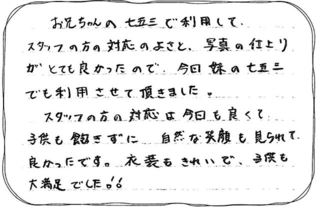 お兄ちゃんの七五三で利用して、
スタッフの方の対応のよさと、写真の仕上り
がとても良かったので、今回妹の七五三
でも利用させて頂きました。
スタッフの方の対応は今回も良くて
子供も飽きずに 自然な笑顔も見られて
良かったです。衣装もきれいで、子供も
大満足でした!!